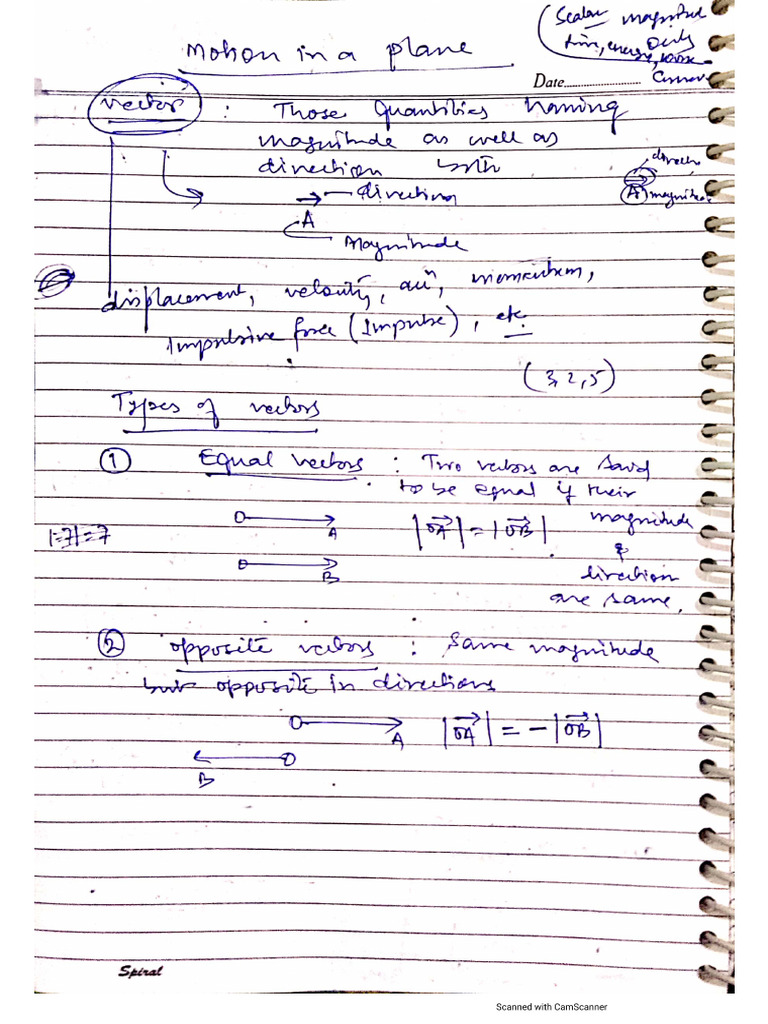 Scalar magnitud
only
time, energy, work
Current
Motion in a plane
Date
vector : Those Quantities having
magnitude as well as
direction with
direct
→ direction
A
A magnitude
Magnitude
displacement, velocity, accn, momentum,
Impulsive force (Impulse), etc.
(3, 2, 5)
Types of vectors
① Equal vectors : Two vectors are said
to be equal if their
O A |OA| = |OB| magnitude
|-7| = 7
&
O B direction
are same.
② opposite vectors : Same magnitude
but opposite in directions
O A |OA| = -|OB|
B O
Spiral
Scanned with CamScanner